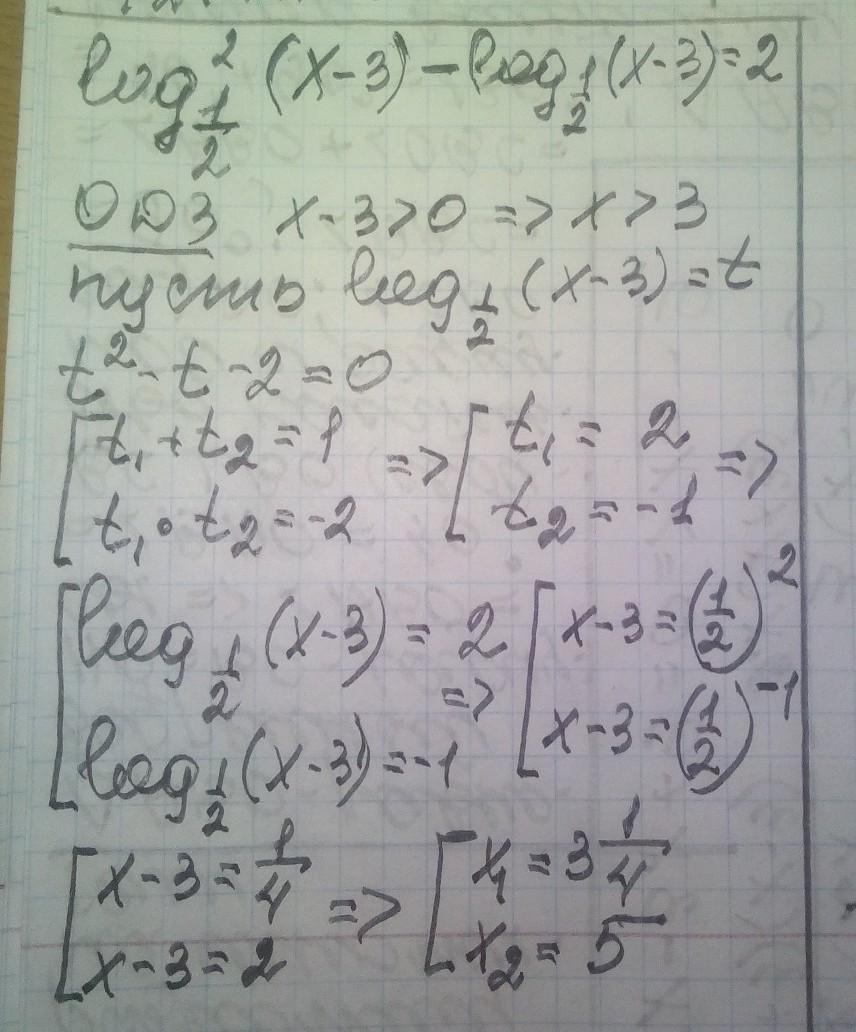 log²_{1/2} (x-3) - log_{1/2} (x-3) = 2
ОДЗ x-3>0 => x>3
пусть log_{1/2} (x-3) = t
t² - t - 2 = 0
[ t₁ + t₂ = 1 => [ t₁ = 2 =>
t₁ • t₂ = -2 t₂ = -1
[ log_{1/2} (x-3) = 2 => [ x-3 = (1/2)²
log_{1/2} (x-3) = -1 x-3 = (1/2)⁻¹
[ x-3 = 1/4 => [ x₁ = 3 1/4
x-3 = 2 x₂ = 5